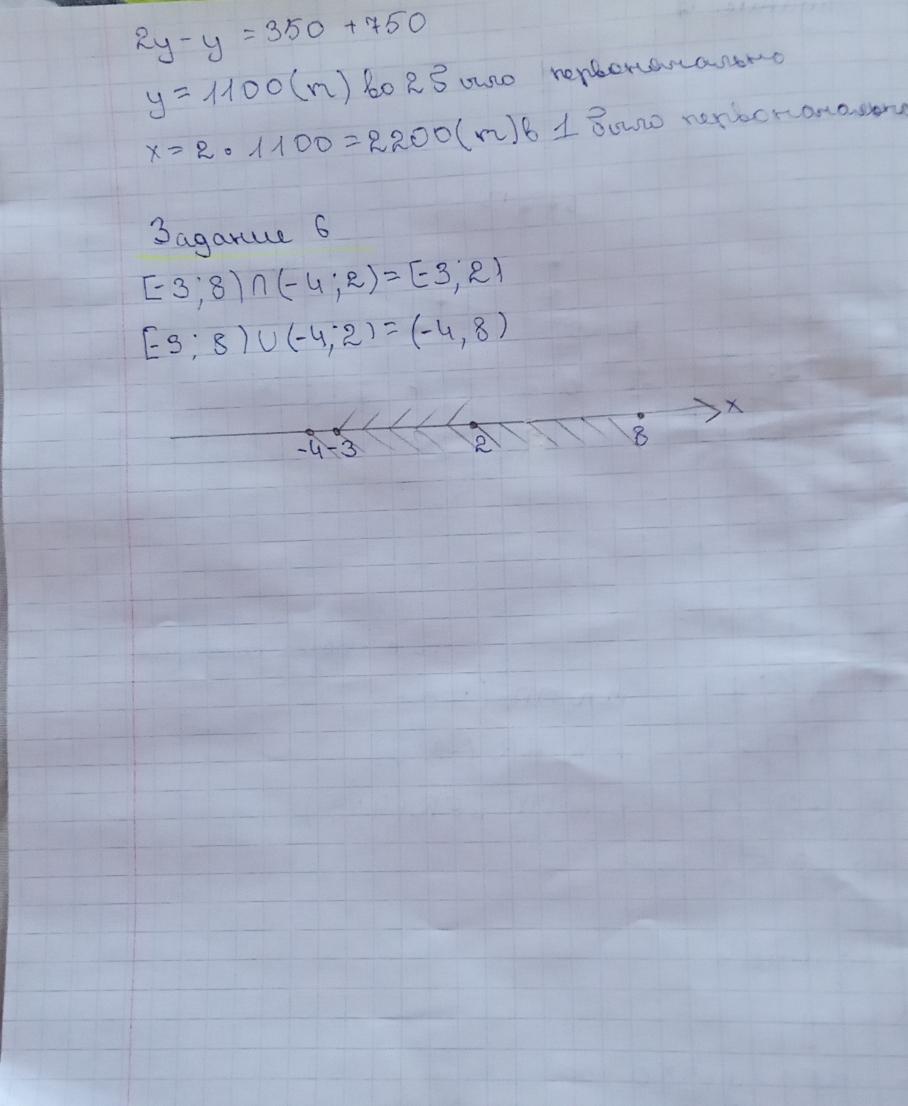 2y - y = 350 + 750
y = 1100 (т) во 2 было первоначально
x = 2 · 1100 = 2200 (т) в 1 было первоначально
Задание 6
[-3; 8) ∩ (-4; 2) = [-3; 2)
[-3; 8) ∪ (-4; 2) = (-4, 8)
-4 -3 2 8 x